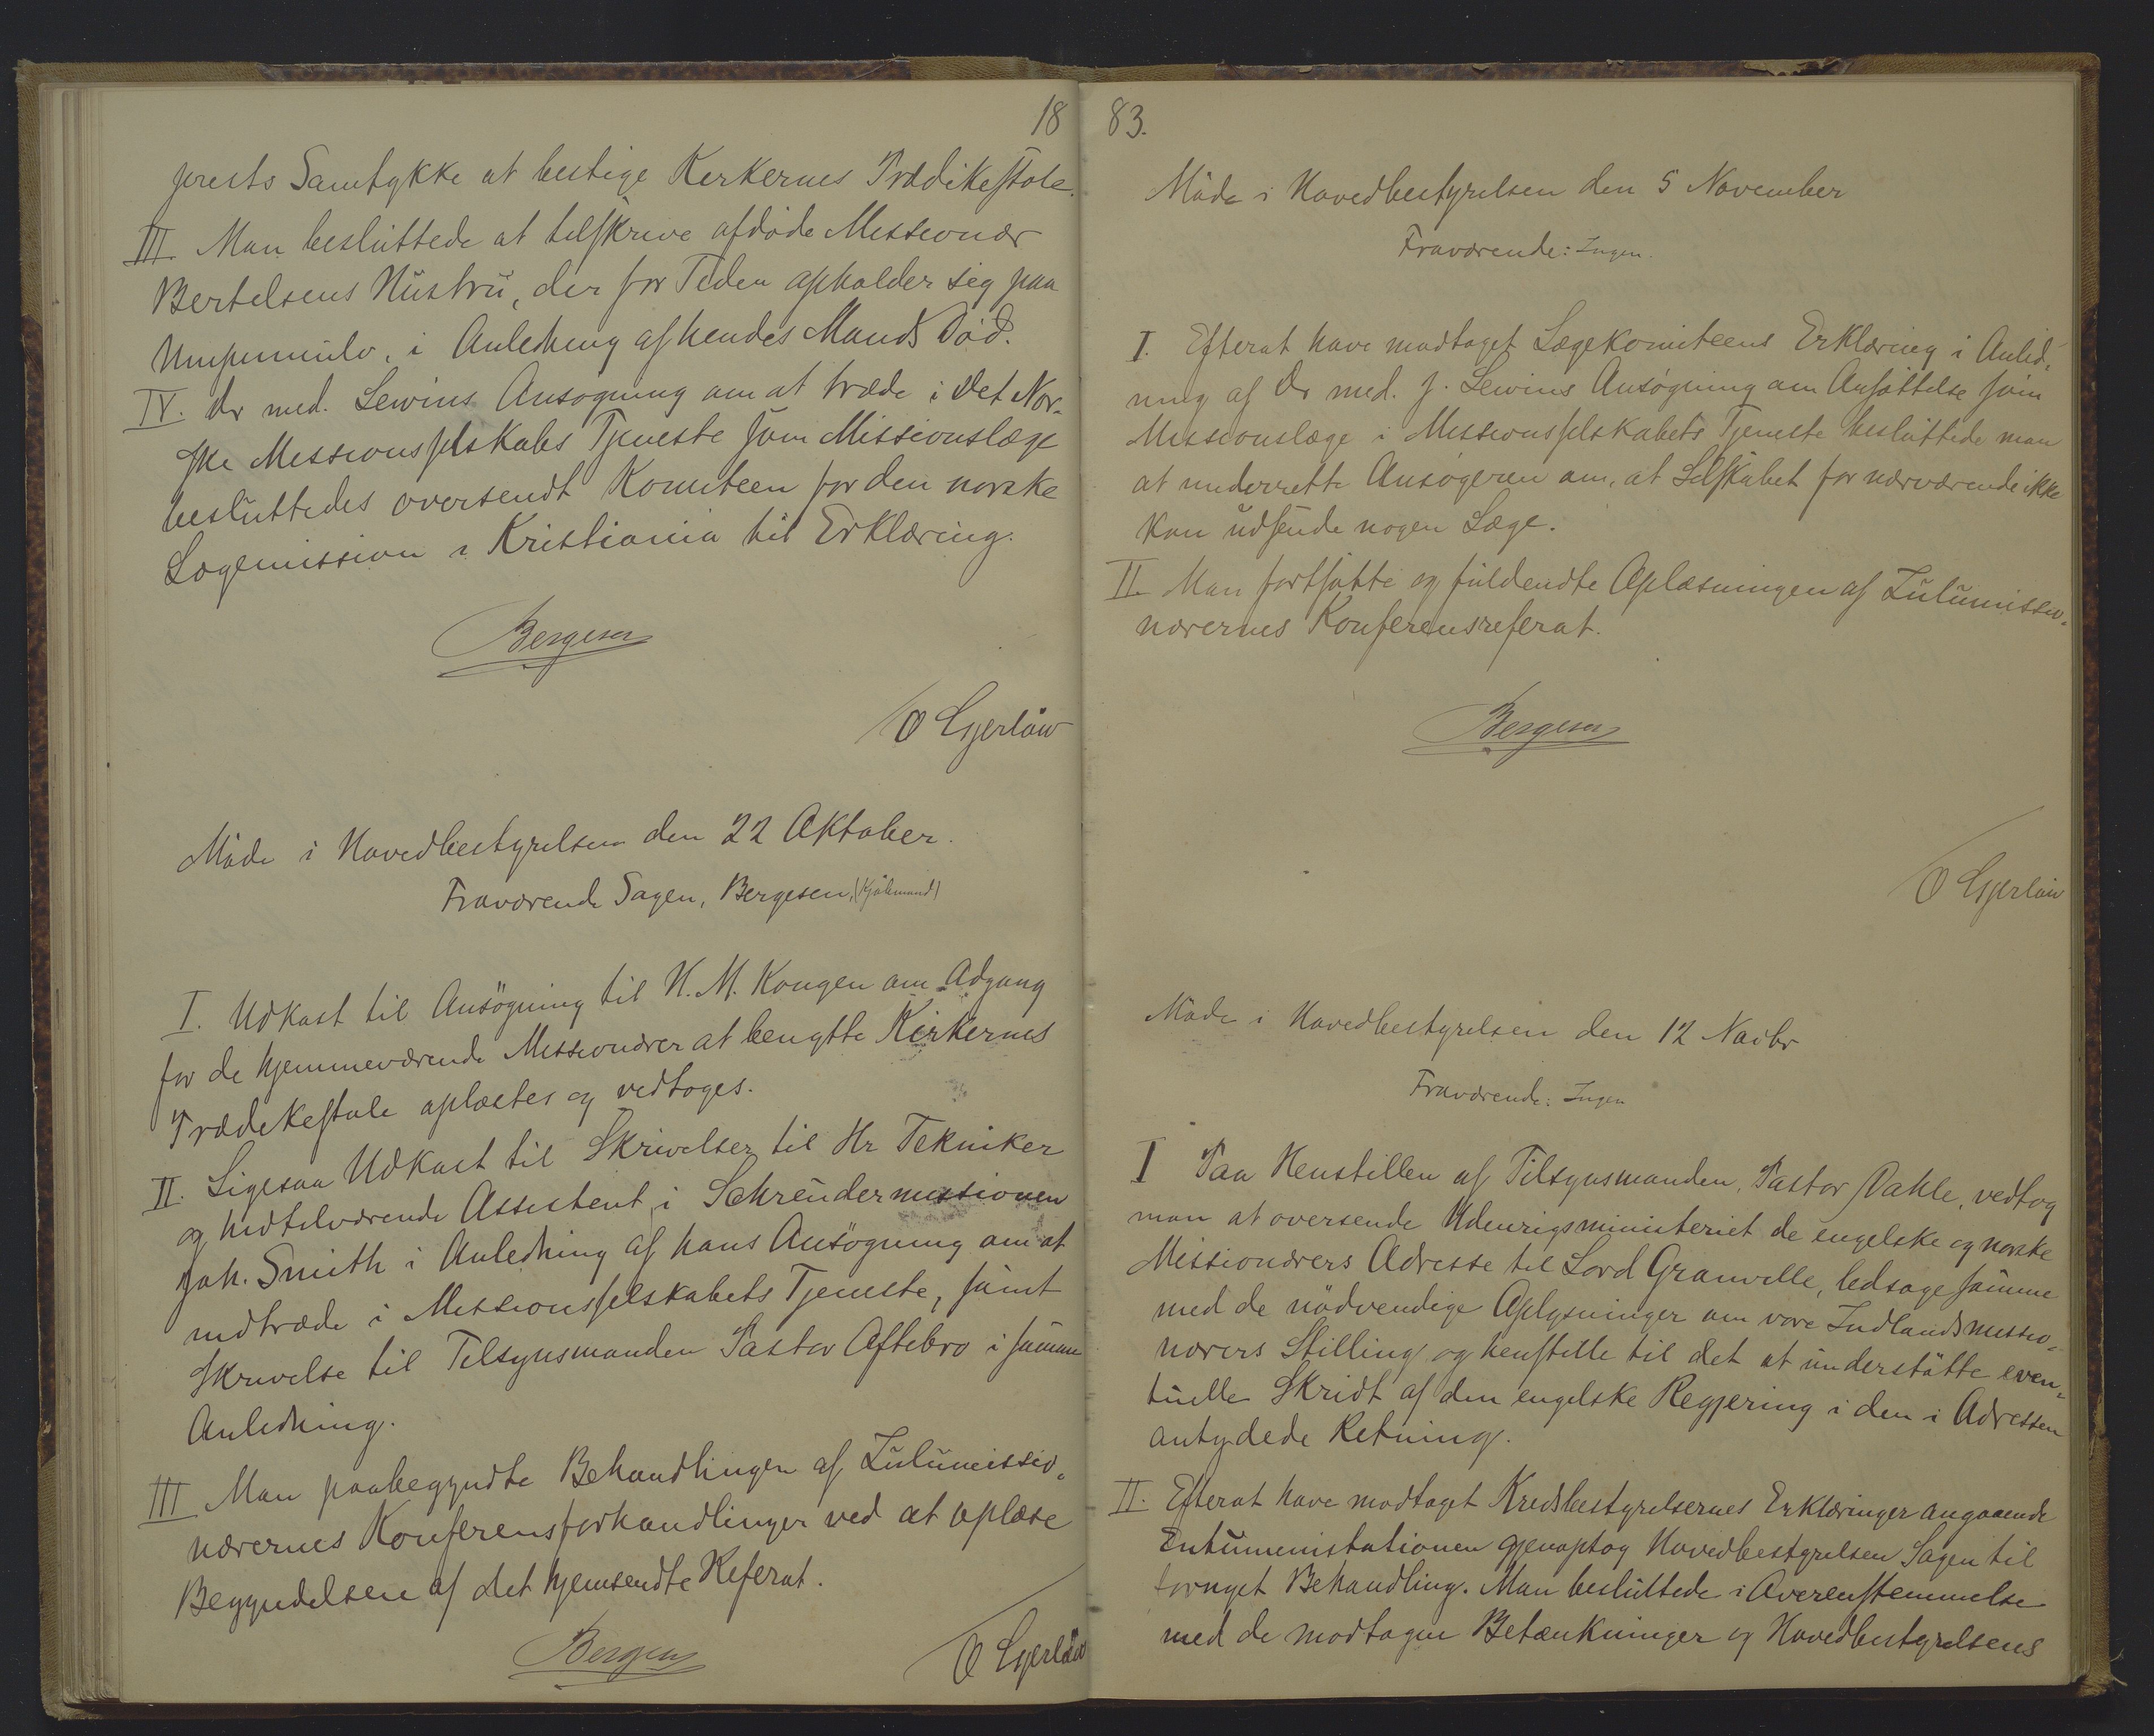 18
prests Samtykke at bestige Kirkernes Prædikestole.
III. Man besluttede at tilskrive afdøde Missionær
Bertelsens Hustru, der for Tiden opholder sig paa
Umpumulo, i Anledning af hendes Mands Død.
IV. Dr med. Lewins Ansøgning om at træde i Det Nor-
ske Missionsselskabs Tjeneste som Missionslæge
besluttedes oversendt Komiteen for den norske
Lægemission i Kristiania til Erklæring.
Bergesen
O Gjerløw
Møde i Hovedbestyrelsen den 22 Oktober.
Fraværende Sagen, Bergesen, (Kjølmand)
I. Udkast til Ansøgning til H. M. Kongen om Adgang
for de hjemmeværende Missionærer at benytte Kirkernes
Prædikestole oplæstes og vedtoges.
II. Ligesaa Udkast til Skrivelser til Hr Tekniker
og midtilværende Assistent i Schreudermissionen
Joh. Smith i Anledning af hans Ansøgning om at
indtræde i Missionsselskabets Tjeneste, samt
Skrivelse til Tilsynsmanden Pastor Oftebro i samme
Anledning.
III Man paabegyndte Behandlingen af Zulumissio-
nærernes Konferensforhandlinger ved at oplæse
Begyndelsen af det hjemsendte Referat.
Bergesen
O Gjerløw
83.
Møde i Hovedbestyrelsen den 5 November
Fraværende: Ingen.
I. Efterat have modtaget Lægekomiteens Erklæring i Anled-
ning af Dr med. J. Lewins Ansøgning om Ansættelse som
Missionslæge i Missionsselskabets Tjeneste besluttede man
at underrette Ansøgeren om, at Selskabet for nærværende ikke
kan udsende nogen Læge.
II. Man fortsatte og fuldendte Oplæsningen af Zulumissio-
nærernes Konferensreferat.
Bergesen
O Gjerløw
Møde i Hovedbestyrelsen den 12 Novbr
Fraværende: Ingen
I Paa Henstillen af Tilsynsmanden, Pastor Dahle, vedtog
man at oversende Udenrigsministeriet de engelske og norske
Missionærers Adresse til Lord Granville, ledsage samme
med de nødvendige Oplysninger om vore Indlandsmissio-
nærers Stilling og henstille til det at understøtte even-
tuelle Skridt af den engelske Regjering i den i Adressen
antydede Retning.
II. Efterat have modtaget Kredsbestyrelsernes Erklæringer angaaende
Entumenistationen gjenoptog Hovedbestyrelsen Sagen til
fornyet Behandling. Man besluttede i Overensstemmelse
med de modtagne Betænkninger og Hovedbestyrelsens